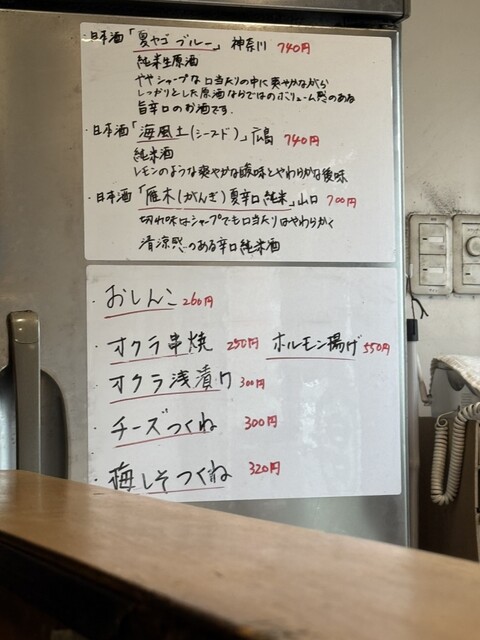 ・日本酒「夏ヤゴブルー」神奈川 740円
純米生原酒
ややシャープな口当たりの中に爽やかながら
しっかりとした原酒ならではのボリューム感のある
旨辛口のお酒です.
・日本酒「海風土(シーフード)」広島 740円
純米酒
レモンのような爽やかな酸味とやわらかな後味
・日本酒「雁木(がんぎ)夏辛口純米」山口 700円
切れ味はシャープでも口当たりはやわらかく
清涼感のある辛口純米酒
・おしんこ 260円
・オクラ串焼 250円 ホルモン揚げ 550円
・オクラ浅漬け 300円
・チーズつくね 300円
・梅しそつくね 320円